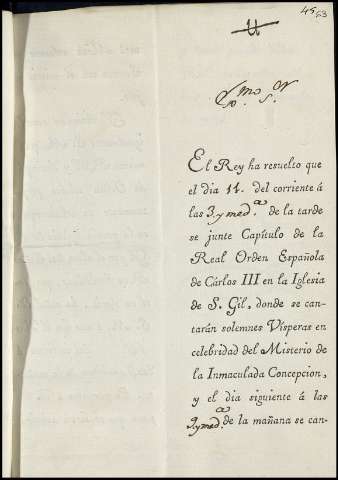 45
53
Exmo. Sr.
El Rey ha resuelto que
el dia 11. del corriente á
las 3. y med.a de la tarde
se junte Capítulo de la
Real Orden Española
de Cárlos III en la Iglesia
de S. Gil, donde se can-
tarán solemnes Vísperas en
celebridad del Misterio de
la Inmaculada Concepcion,
y el dia siguiente á las
9. y med.a de la mañana se can-